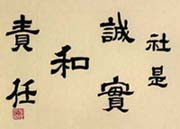 社是
誠實
和
責任